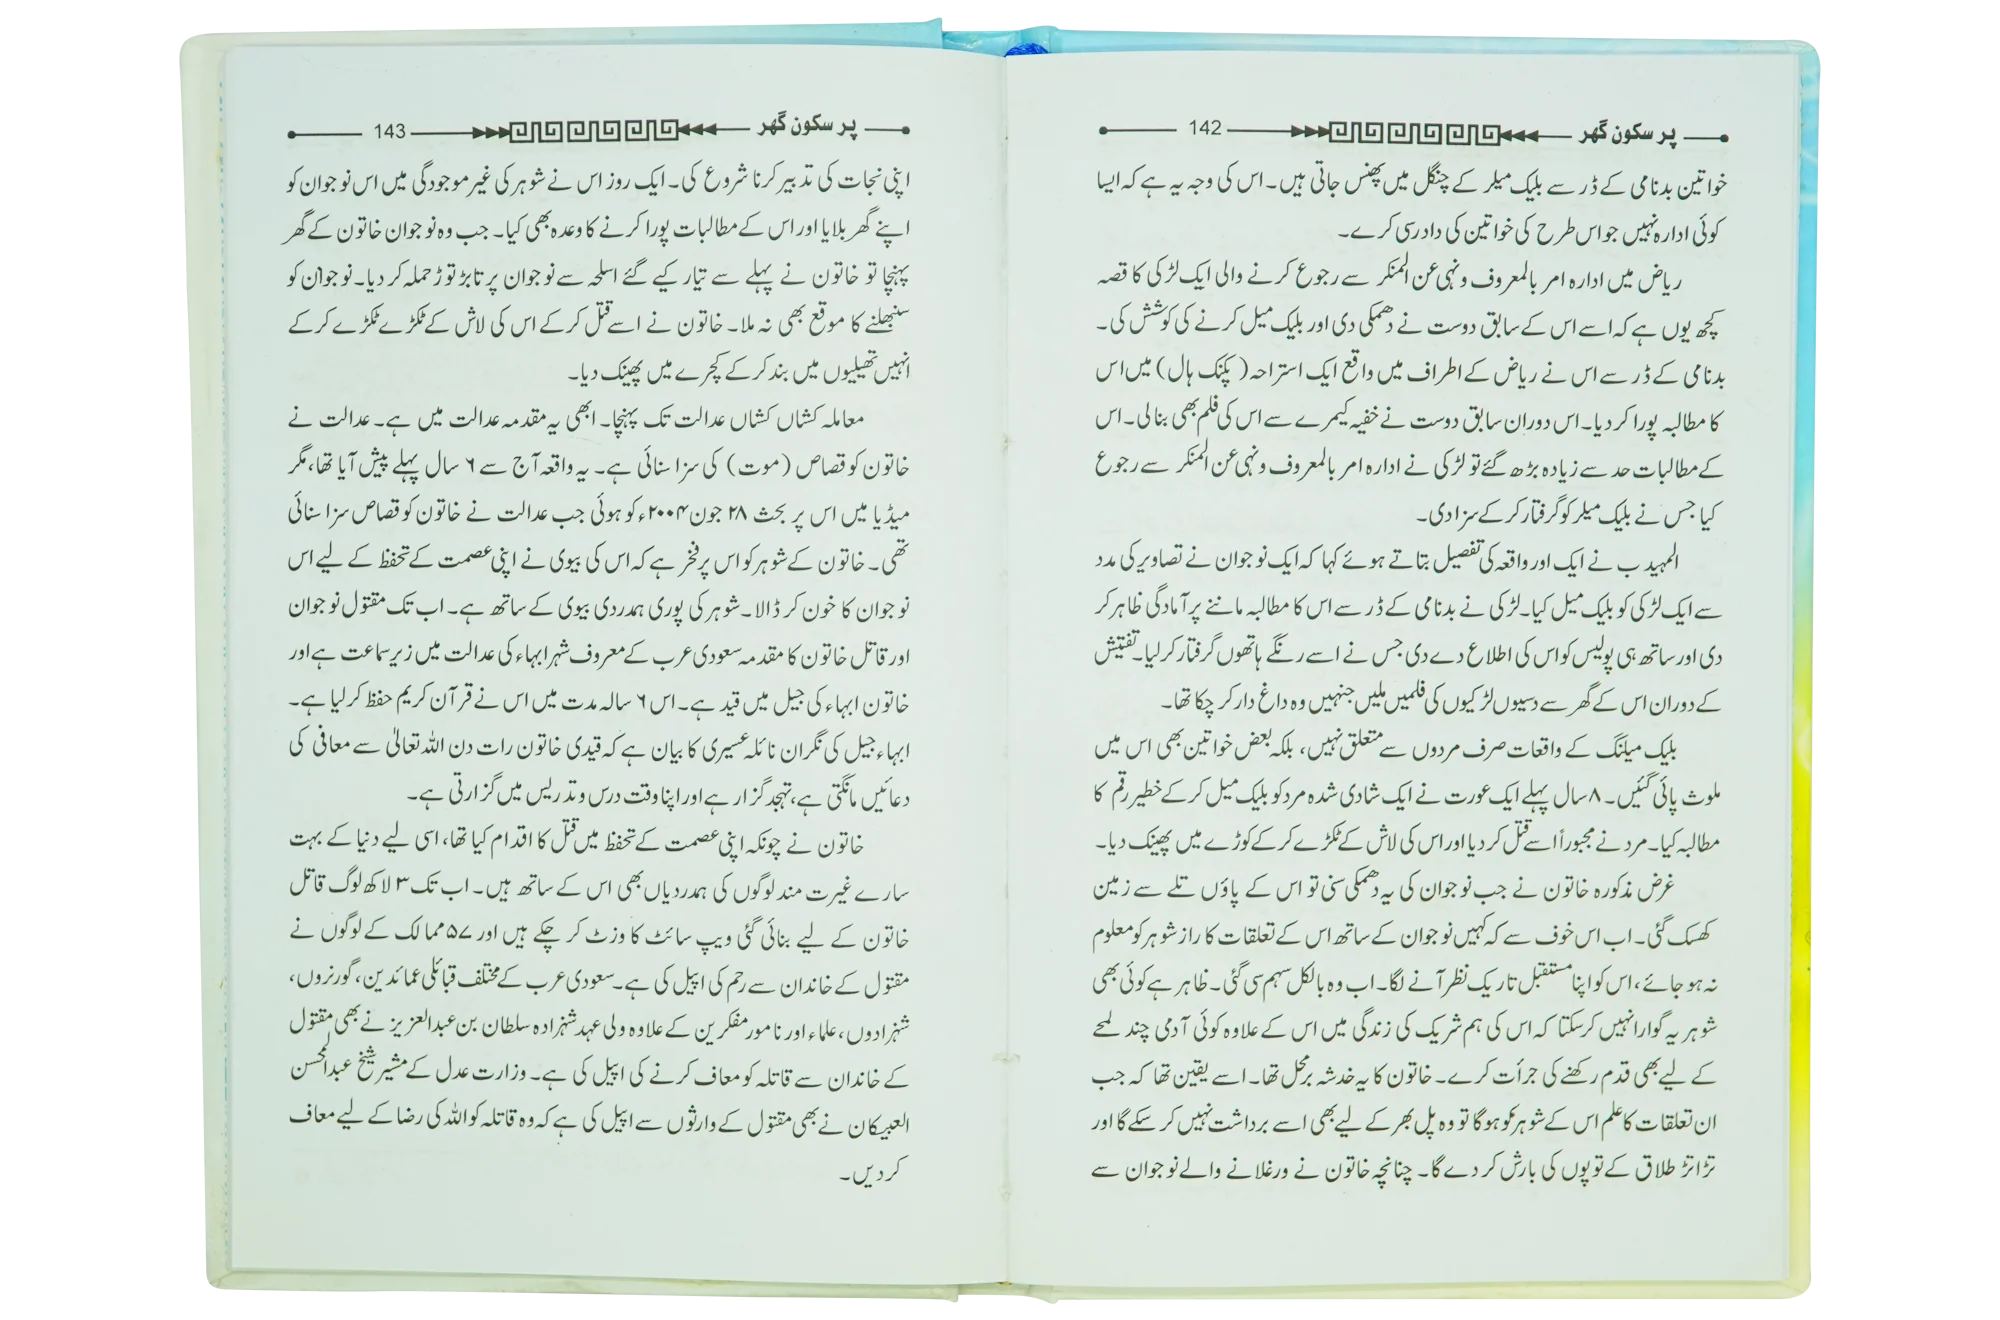 پر سکون گھر 142
خواتین بدنامی کے ڈر سے بلیک میلر کے چنگل میں پھنس جاتی ہیں۔ اس کی وجہ یہ ہے کہ ایسا
کوئی ادارہ نہیں جو اس طرح کی خواتین کی داد رسی کرے۔
ریاض میں ادارہ امر بالمعروف و نہی عن المنکر سے رجوع کرنے والی ایک لڑکی کا قصہ
کچھ یوں ہے کہ اسے اس کے سابق دوست نے دھمکی دی اور بلیک میل کرنے کی کوشش کی۔
بدنامی کے ڈر سے اس نے ریاض کے اطراف میں واقع ایک استراحہ (پکنک ہال) میں اس
کا مطالبہ پورا کر دیا۔ اس دوران سابق دوست نے خفیہ کیمرے سے اس کی فلم بھی بنا لی۔ اس
کے مطالبات حد سے زیادہ بڑھ گئے تو لڑکی نے ادارہ امر بالمعروف و نہی عن المنکر سے رجوع
کیا جس نے بلیک میلر کو گرفتار کر کے سزا دی۔
المہیدب نے ایک اور واقعہ کی تفصیل بتاتے ہوئے کہا کہ ایک نوجوان نے تصاویر کی مدد
سے ایک لڑکی کو بلیک میل کیا۔ لڑکی نے بدنامی کے ڈر سے اس کا مطالبہ ماننے پر آمادگی ظاہر کر
دی اور ساتھ ہی پولیس کو اس کی اطلاع دے دی جس نے اسے رنگے ہاتھوں گرفتار کر لیا۔ تفتیش
کے دوران اس کے گھر سے دسیوں لڑکیوں کی فلمیں ملیں جنہیں وہ داغ دار کر چکا تھا۔
بلیک میلنگ کے واقعات صرف مردوں سے متعلق نہیں، بلکہ بعض خواتین بھی اس میں
ملوث پائی گئیں۔ ۸ سال پہلے ایک عورت نے ایک شادی شدہ مرد کو بلیک میل کر کے خطیر رقم کا
مطالبہ کیا۔ مرد نے مجبوراً اسے قتل کر دیا اور اس کی لاش کے ٹکڑے کر کے کوڑے میں پھینک دیا۔
غرض مذکورہ خاتون نے جب نوجوان کی یہ دھمکی سنی تو اس کے پاؤں تلے سے زمین
کھسک گئی۔ اب اس خوف سے کہ کہیں نوجوان کے ساتھ اس کے تعلقات کا راز شوہر کو معلوم
نہ ہو جائے، اس کو اپنا مستقبل تاریک نظر آنے لگا۔ اب وہ بالکل سہم سی گئی۔ ظاہر ہے کوئی بھی
شوہر یہ گوارا نہیں کر سکتا کہ اس کی ہم شریک کی زندگی میں اس کے علاوہ کوئی آدمی چند لمحے
کے لیے بھی قدم رکھنے کی جرأت کرے۔ خاتون کا یہ خدشہ برمحل تھا۔ اسے یقین تھا کہ جب
ان تعلقات کا علم اس کے شوہر کو ہو گا تو وہ پل بھر کے لیے بھی اسے برداشت نہیں کر سکے گا اور
تڑاتڑ طلاق کے توپوں کی بارش کر دے گا۔ چنانچہ خاتون نے ورغلانے والے نوجوان سے
پر سکون گھر 143
اپنی نجات کی تدبیر کرنا شروع کی۔ ایک روز اس نے شوہر کی غیر موجودگی میں اس نوجوان کو
اپنے گھر بلایا اور اس کے مطالبات پورا کرنے کا وعدہ بھی کیا۔ جب وہ نوجوان خاتون کے گھر
پہنچا تو خاتون نے پہلے سے تیار کیے گئے اسلحہ سے نوجوان پر تابڑ توڑ حملہ کر دیا۔ نوجوان کو
سنبھلنے کا موقع بھی نہ ملا۔ خاتون نے اسے قتل کر کے اس کی لاش کے ٹکڑے ٹکڑے کر کے
انہیں تھیلیوں میں بند کر کے کچرے میں پھینک دیا۔
معاملہ کشاں کشاں عدالت تک پہنچا۔ ابھی یہ مقدمہ عدالت میں ہے۔ عدالت نے
خاتون کو قصاص (موت) کی سزا سنائی ہے۔ یہ واقعہ آج سے ۶ سال پہلے پیش آیا تھا، مگر
میڈیا میں اس پر بحث ۲۸ جون ۲۰۰۴ء کو ہوئی جب عدالت نے خاتون کو قصاص سزا سنائی
تھی۔ خاتون کے شوہر کو اس پر فخر ہے کہ اس کی بیوی نے اپنی عصمت کے تحفظ کے لیے اس
نوجوان کا خون کر ڈالا۔ شوہر کی پوری ہمدردی بیوی کے ساتھ ہے۔ اب تک مقتول نوجوان
اور قاتل خاتون کا مقدمہ سعودی عرب کے معروف شہر ابہاء کی عدالت میں زیر سماعت ہے اور
خاتون ابہاء کی جیل میں قید ہے۔ اس ۶ سالہ مدت میں اس نے قرآن کریم حفظ کر لیا ہے۔
ابہاء جیل کی نگران نائلہ عسیری کا بیان ہے کہ قیدی خاتون رات دن اللہ تعالیٰ سے معافی کی
دعائیں مانگتی ہے، تہجد گزار ہے اور اپنا وقت درس و تدریس میں گزارتی ہے۔
خاتون نے چونکہ اپنی عصمت کے تحفظ میں قتل کا اقدام کیا تھا، اسی لیے دنیا کے بہت
سارے غیرت مند لوگوں کی ہمدردیاں بھی اس کے ساتھ ہیں۔ اب تک ۳ لاکھ لوگ قاتل
خاتون کے لیے بنائی گئی ویب سائٹ کا وزٹ کر چکے ہیں اور ۵۷ ممالک کے لوگوں نے
مقتول کے خاندان سے رحم کی اپیل کی ہے۔ سعودی عرب کے مختلف قبائلی عمائدین، گورنروں،
شہزادوں، علماء اور نامور مفکرین کے علاوہ ولی عہد شہزادہ سلطان بن عبدالعزیز نے بھی مقتول
کے خاندان سے قاتلہ کو معاف کرنے کی اپیل کی ہے۔ وزارت عدل کے مشیر شیخ عبدالمحسن
العبیکان نے بھی مقتول کے وارثوں سے اپیل کی ہے کہ وہ قاتلہ کو اللہ کی رضا کے لیے معاف
کر دیں۔